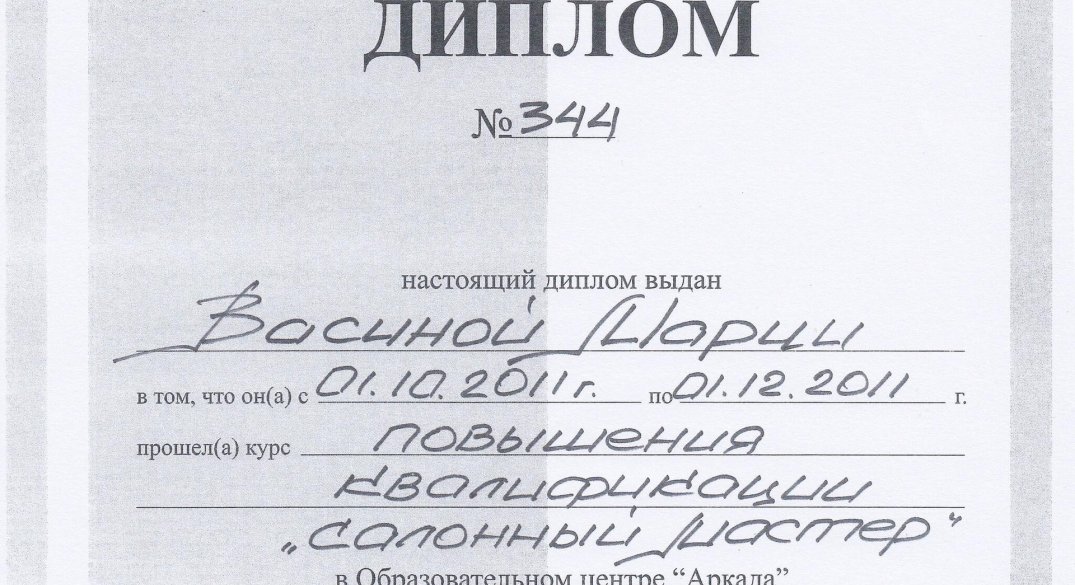 ДИПЛОМ
№ 344
настоящий диплом выдан
Васиной Марии
в том, что он(а) с 01.10.2011г. по 01.12.2011 г.
прошел(а) курс повышения
квалификации
„салонный мастер“
в Образовательном центре “Аркада”